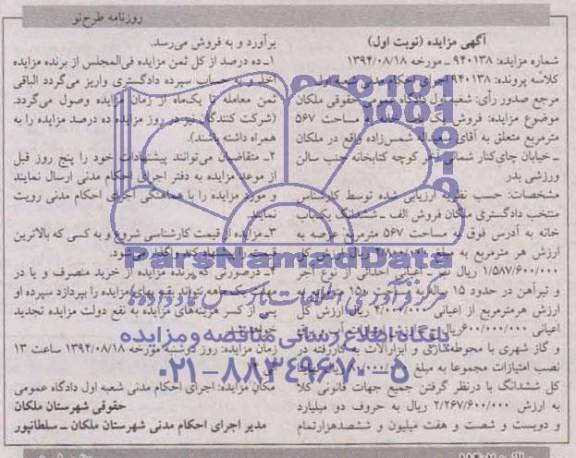 روزنامه طرح‌نو
آگهی مزایده (نوبت اول)
شماره مزایده: ۹۴۰۱۳۸ ـ مورخه ۱۳۹۴/۰۸/۱۸
کلاسه پرونده: ۹۴۰۱۳۸ اجرای احکام مدنی شعبه اول
مرجع صدور رأی: شعبه اول دادگاه عمومی حقوقی ملکان
موضوع مزایده: فروش یک به مساحت ۵۶۷
مترمربع متعلق به آقای شمس‌زاده واقع در ملکان
ـ خیابان چای‌کنار شمالی آخر کوچه کتابخانه جنب سالن
ورزشی بدر
مشخصات: حسب نظریه ارزیابی شده توسط کارشناس
منتخب دادگستری ملکان فروش الف ـ ششدانگ یکباب
خانه به آدرس فوق به مساحت ۵۶۷ مترمربع عرصه به
ارزش هر مترمربع به مبلغ ریال ارزش کل
۱/۵۸۷/۶۰۰/۰۰۰ ریال اعیانی احداثی از نوع آجر
و تیرآهن در حدود ۱۵ سال به مساحت ۱۵۰ مترمربع به
ارزش هرمترمربع از اعیانی ۴/۰۰۰/۰۰۰ ریال ارزش کل
اعیانی ۶۰۰/۰۰۰/۰۰۰ ریال آب برق
و گاز شهری با محوطه‌سازی و ابزارآلات به کاررفته در
نصب امتیازات مجموعا به مبلغ
کل ششدانگ با درنظر گرفتن جمیع جهات قانونی کلا
به ارزش ۲/۲۶۷/۶۰۰/۰۰۰ ریال به حروف دو میلیارد
و دویست و شصت و هفت میلیون و ششصدهزارتمام
برآورد و به فروش می‌رسد.
۱ـ ده درصد از کل ثمن مزایده فی‌المجلس از برنده مزایده
اخذ و به حساب سپرده دادگستری واریز می‌گردد الباقی
ثمن معامله تا یک‌ماه از زمان مزایده وصول می‌گردد.
(شرکت کنندگان نیز در روز مزایده ده درصد مزایده را به
همراه داشته باشند).
۲ـ متقاضیان می‌توانند پیشنهادات خود را پنج روز قبل
از موعد مزایده به دفتر اجرای احکام مدنی ارسال نمایند
و مورد مزایده را با هماهنگی اجرای احکام مدنی رویت
نمایند.
۳ـ مزایده از قیمت کارشناسی شروع و به کسی که بالاترین
قیمت را پیشنهاد کند واگذار می‌شود.
۴ـ درصورتی که برنده مزایده از خرید منصرف و یا در
مهلت یک ماهه نتواند بقیه بهای مزایده را بپردازد سپرده او
پس از کسر هزینه‌های مزایده به نفع دولت مزایده تجدید
خواهد شد.
زمان مزایده: روز دوشنبه مورخه ۱۳۹۴/۰۸/۱۸ ساعت ۱۳
مکان مزایده: اجرای احکام مدنی شعبه اول دادگاه عمومی
حقوقی شهرستان ملکان
مدیر اجرای احکام مدنی شهرستان ملکان ـ سلطانپور
ParsNamadData
مرکز فرآوری اطلاعات پارس نماد داده‌ها
پایگاه اطلاع رسانی مناقصه و مزایده
۰۲۱-۸۸۳۴۹۶۷۰-۵